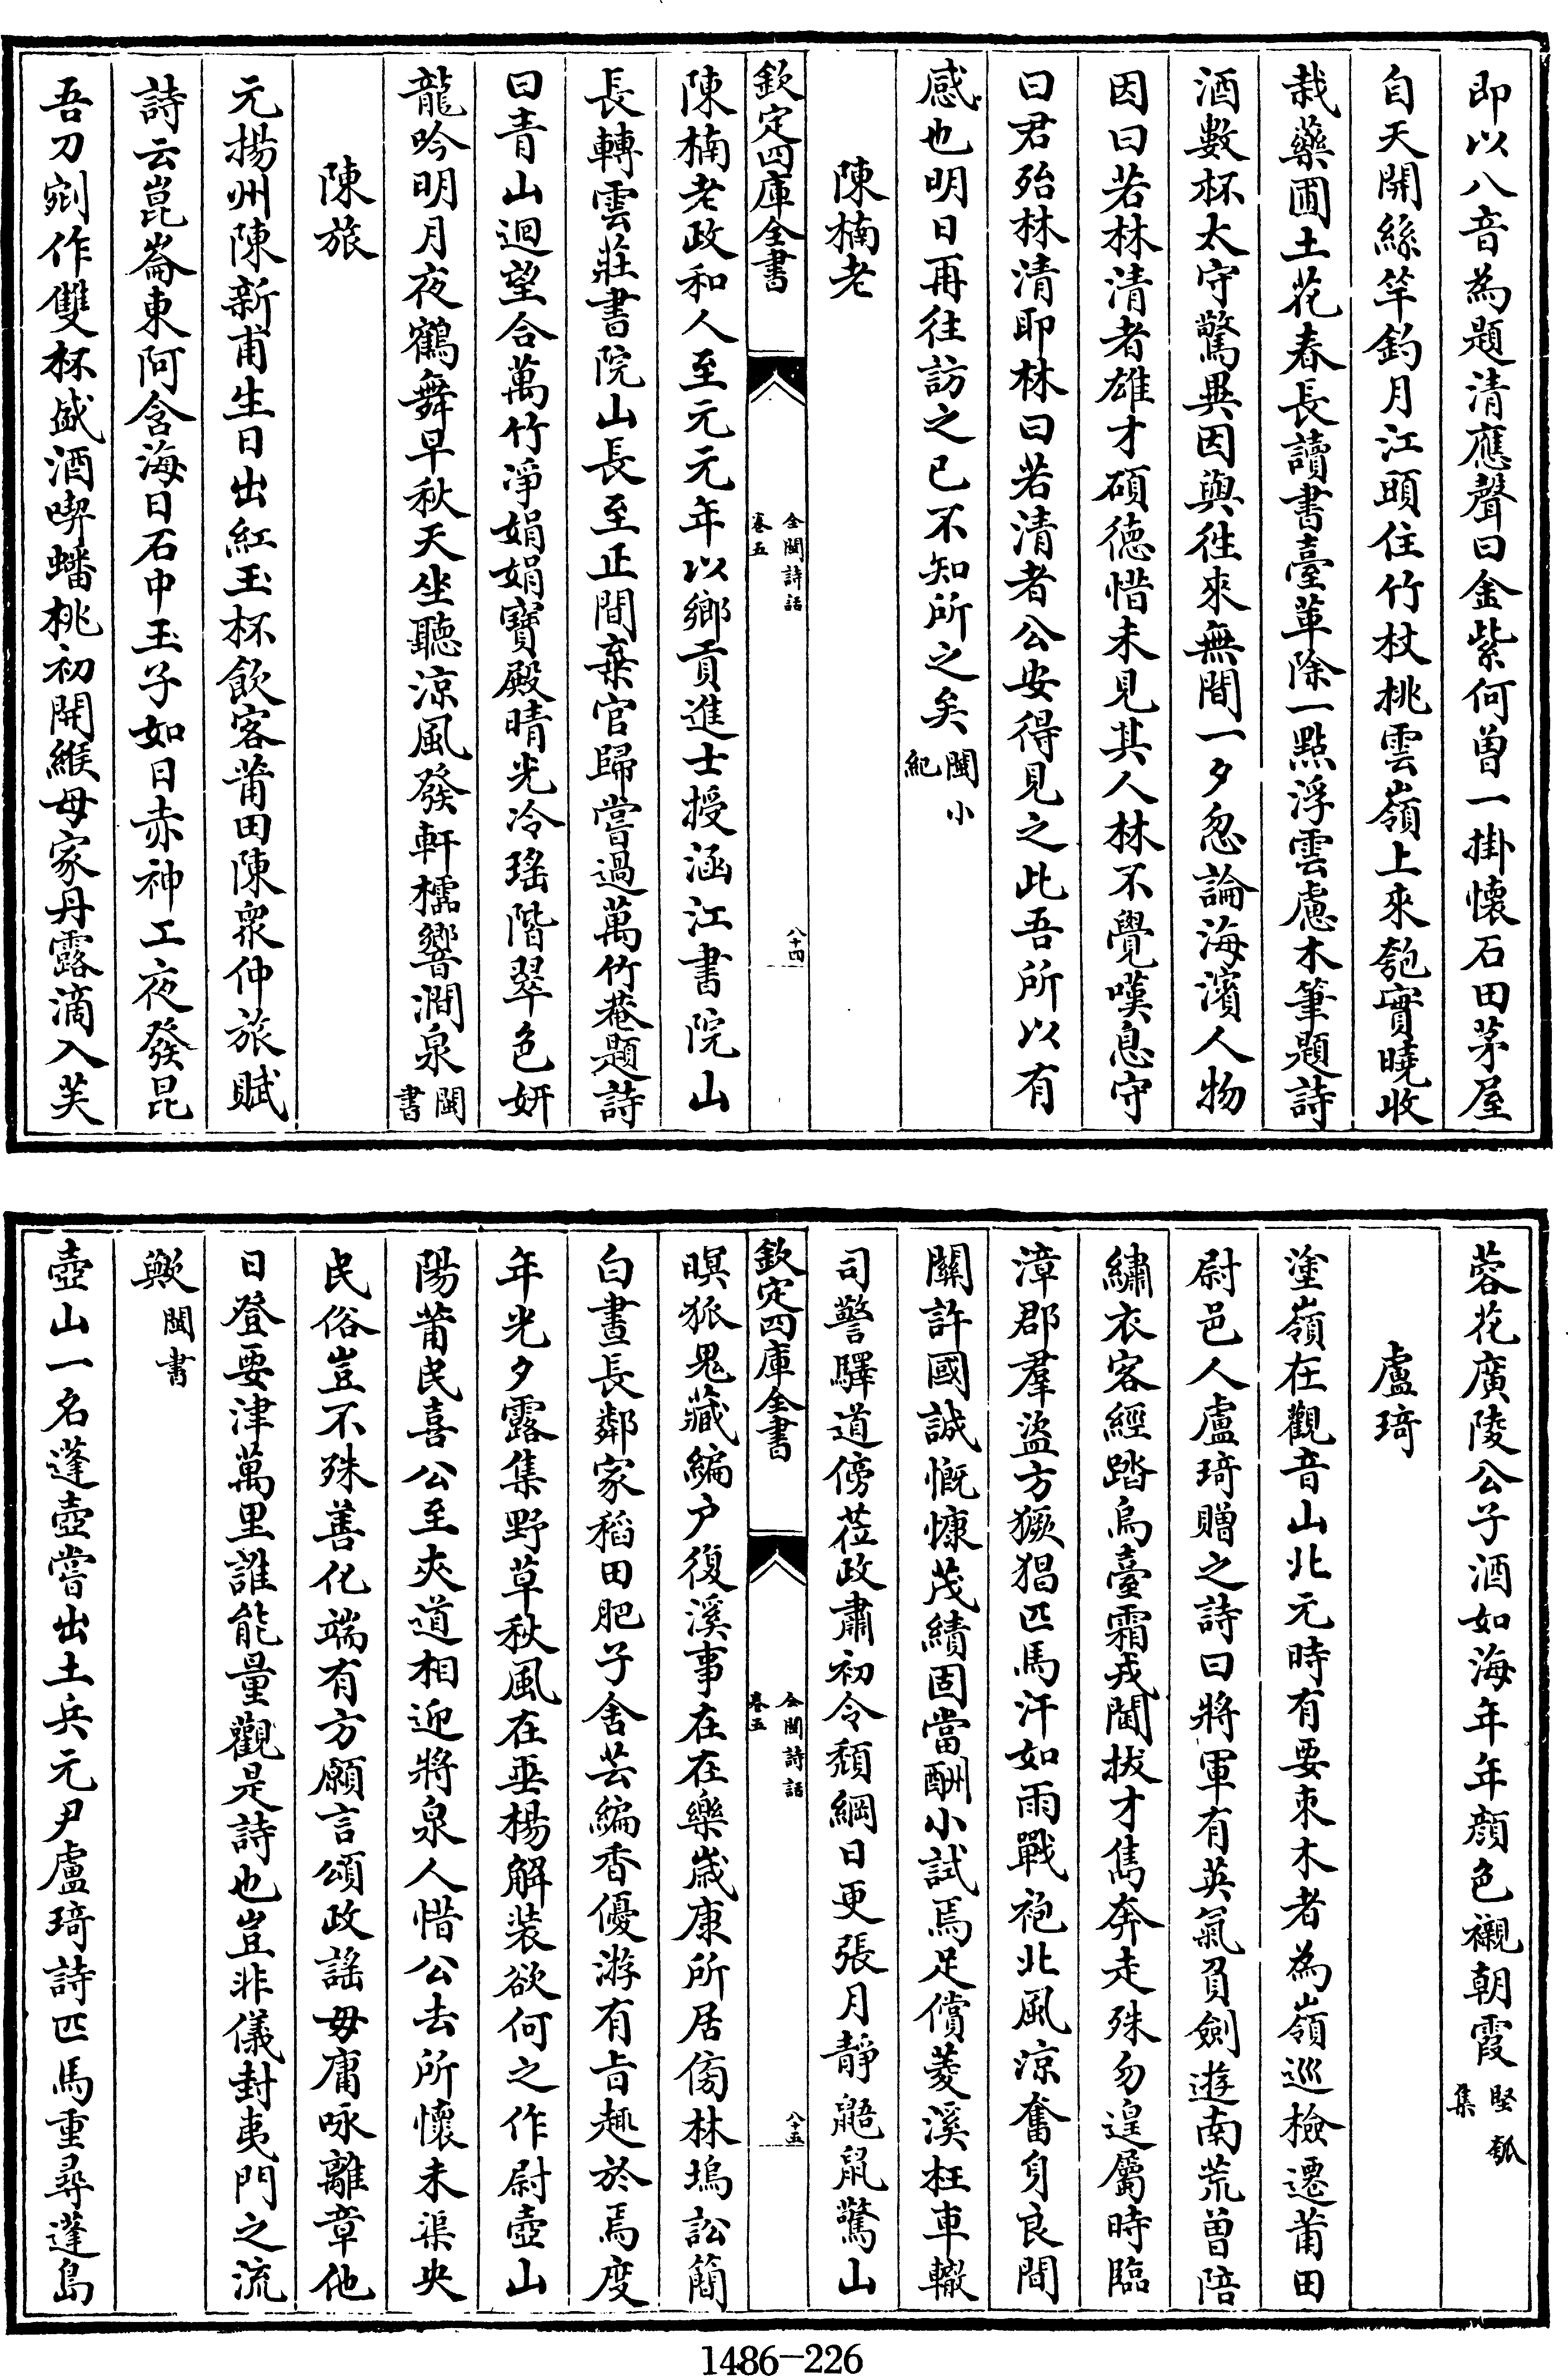 即以八音為題清應聲曰金紫何曽一掛懷石田茅屋
自天開絲竿釣月江頭住竹杖桃雲嶺上來匏實曉收
栽藥圃土花春長讀書臺革除一點浮雲慮木筆題詩
酒數杯太守驚異因與徃來無間一夕忽論海濱人物
因曰若林清者雄才碩徳惜未見其人林不覺嘆息守
曰君殆林清耶林曰若清者公安得見之此吾所以有
感也明日再往訪之已不知所之矣閩小紀
陳楠老
欽定四庫全書
全閩詩話
卷五
八十四
陳楠老政和人至元元年以鄉貢進士授涵江書院山
長轉雲莊書院山長至正間棄官歸嘗過萬竹菴題詩
曰青山迴望合萬竹淨娟娟寶殿晴光冷瑶階翠色妍
龍吟明月夜鶴舞早秋天坐聽涼風發軒櫺響澗泉閩書
陳旅
元揚州陳新甫生日出紅玉杯飲客莆田陳衆仲旅賦
詩云崑崙東阿含海日石中玉子如日赤神工夜發昆
吾刀剜作雙杯盛酒喫蟠桃初開緱母家丹露滴入芙
蓉花廣陵公子酒如海年年顔色襯朝霞堅瓠集
盧琦
塗嶺在觀音山北元時有要朿木者為嶺巡檢遷莆田
尉邑人盧琦贈之詩曰將軍有英氣負劍遊南荒曽陪
繡衣客經踏烏臺霜戎閫拔才雋奔走殊勿遑屬時臨
漳郡羣盜方獗猖匹馬汗如雨戰袍北風涼奮身良間
關許國誠慨慷茂績固當酬小試焉足償菱溪枉車轍
司警驛道傍莅政肅初令頽綱日更張月靜鼯鼠驚山
欽定四庫全書
全閩詩話
卷五
八十五
暝狐鬼藏編户復溪事在在樂歲康所居傍林塢訟簡
白晝長鄰家稻田肥子舍芸編香優游有旨趣於焉度
年光夕露集野草秋風在垂楊解装欲何之作尉壺山
陽莆民喜公至夾道相迎將泉人惜公去所懷未渠央
民俗豈不殊善化端有方願言頌政謡毋庸咏離章他
日登要津萬里誰能量觀是詩也豈非儀封夷門之流
歟閩書
壺山一名蓬壺嘗出土兵元尹盧琦詩匹馬重尋蓬島
1486-226